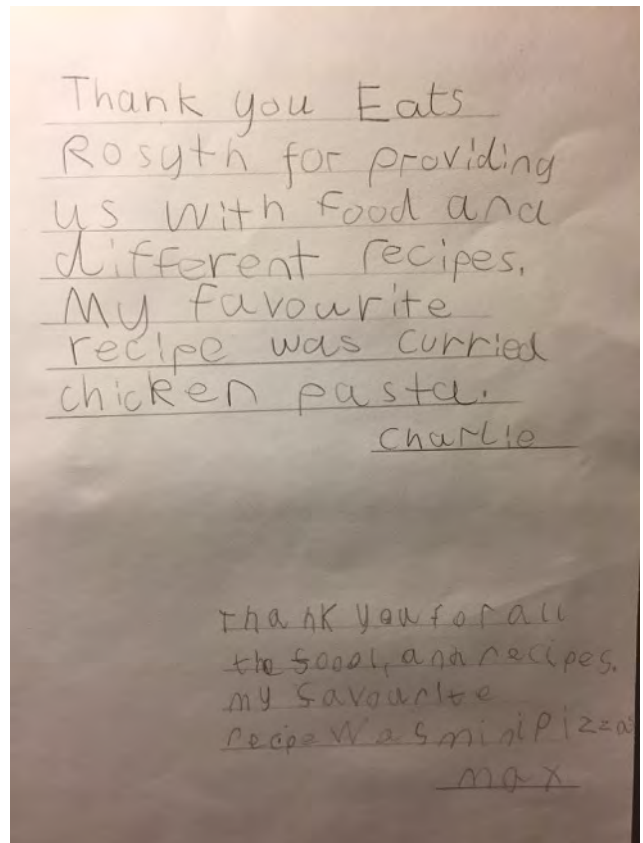 Thank you Eats
Rosyth for providing
us with food and
different recipes.
My favourite
recipe was curried
chicken pasta.
Charlie
Thank you for all
the food, and recipes.
my favourite
recipe was mini pizza
max